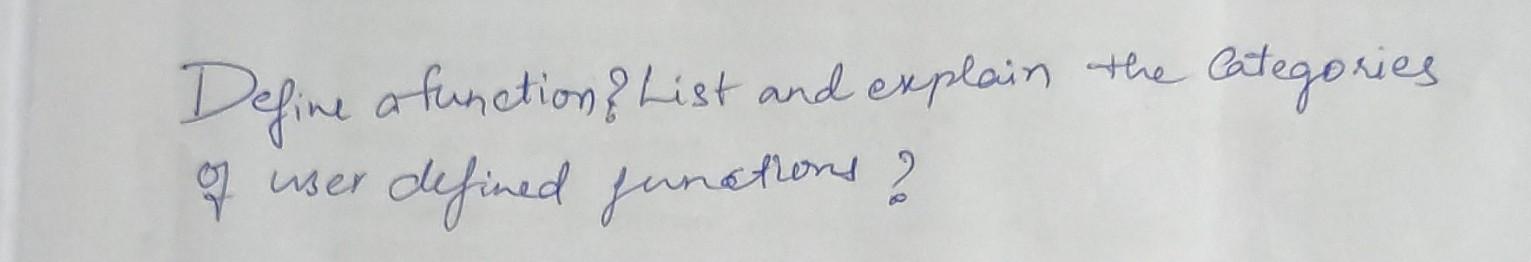 Define a function? List and explain the Categories
of user defined functions?